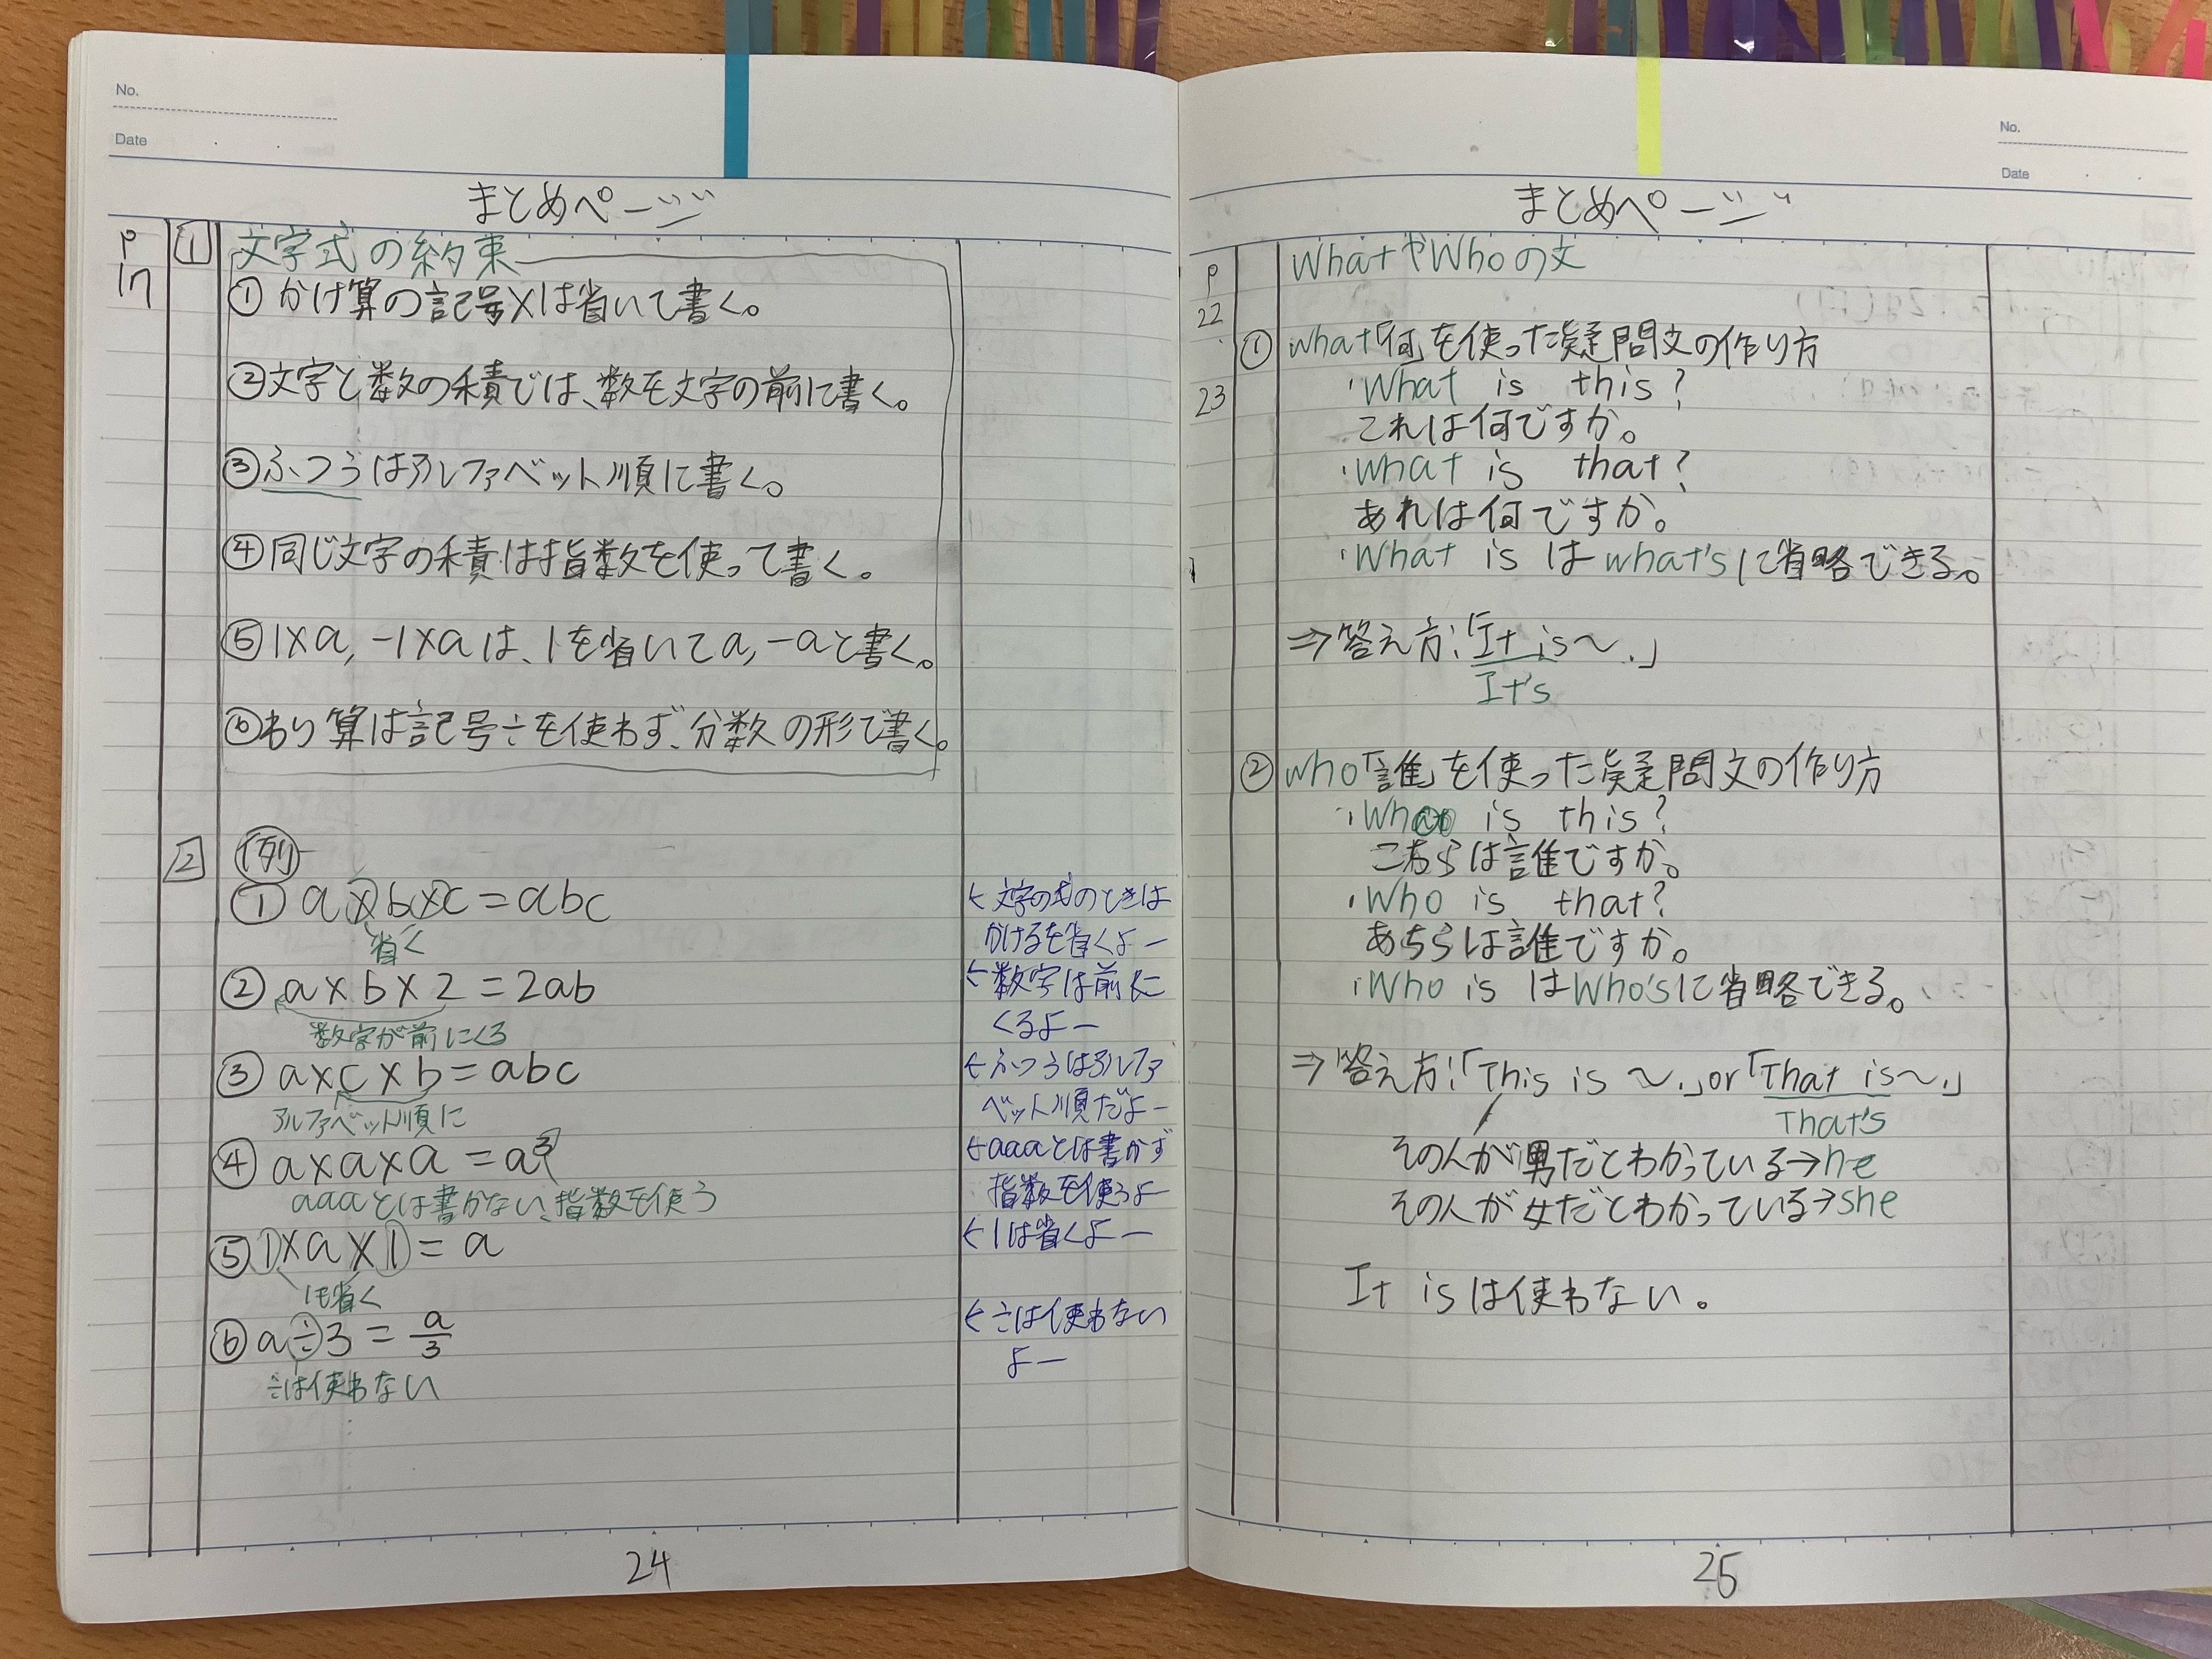 No.
Date
まとめページ
P
17
1 文字式の約束
① かけ算の記号×は省いて書く。
②文字と数の積では、数を文字の前に書く。
③ふつうはアルファベット順に書く。
④同じ文字の積は指数を使って書く。
⑤1×a, -1×aは、1を省いてa, -aと書く。
⑥わり算は記号÷を使わず、分数の形で書く。
2 例
① a×b×c=abc
省く
② a×b×2=2ab
数字が前にくる
③ a×c×b=abc
アルファベット順に
④ a×a×a=a³
aaaとは書かない、指数を使う
⑤ 1×a×1=a
1も省く
⑥ a÷3=a/3
÷は使わない
←文字の式のときは
かけるを省くよー
←数字は前に
くるよー
←ふつうはアルファ
ベット順だよー
←aaaとは書かず
指数を使うよー
←1は省くよー
←÷は使わない
よー
24
No.
Date
まとめページ
P
22
23
WhatやWhoの文
① what「何」を使った疑問文の作り方
・What is this?
これは何ですか。
・What is that?
あれは何ですか。
・What is はwhat'sに省略できる。
⇒答え方:「It is~.」
It's
② who「誰」を使った疑問文の作り方
・Who is this?
こちらは誰ですか。
・Who is that?
あちらは誰ですか。
・Who is はWho'sに省略できる。
⇒答え方:「This is ~.」or「That is~.」
That's
その人が男だとわかっている→he
その人が女だとわかっている→she
It isは使わない。
25